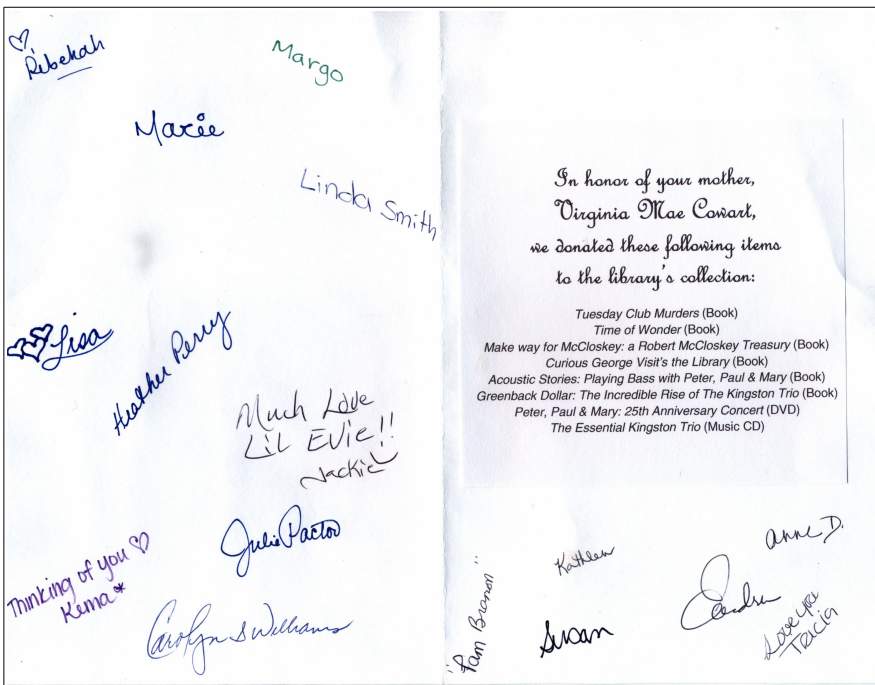 Rebekah
Margo
Marie
Linda Smith
Lisa
Heather Perry
Much Love
Lil Evie!!
Jackie
Julie Pactor
Thinking of you
Kema*
Carolyn S Williams
In honor of your mother,
Virginia Mae Cowart,
we donated these following items
to the library's collection:
Tuesday Club Murders (Book)
Time of Wonder (Book)
Make way for McCloskey: a Robert McCloskey Treasury (Book)
Curious George Visit's the Library (Book)
Acoustic Stories: Playing Bass with Peter, Paul & Mary (Book)
Greenback Dollar: The Incredible Rise of The Kingston Trio (Book)
Peter, Paul & Mary: 25th Anniversary Concert (DVD)
The Essential Kingston Trio (Music CD)
Anne D.
Kathleen
"Pam Branon"
Susan
Sandra
Love you
Tricia